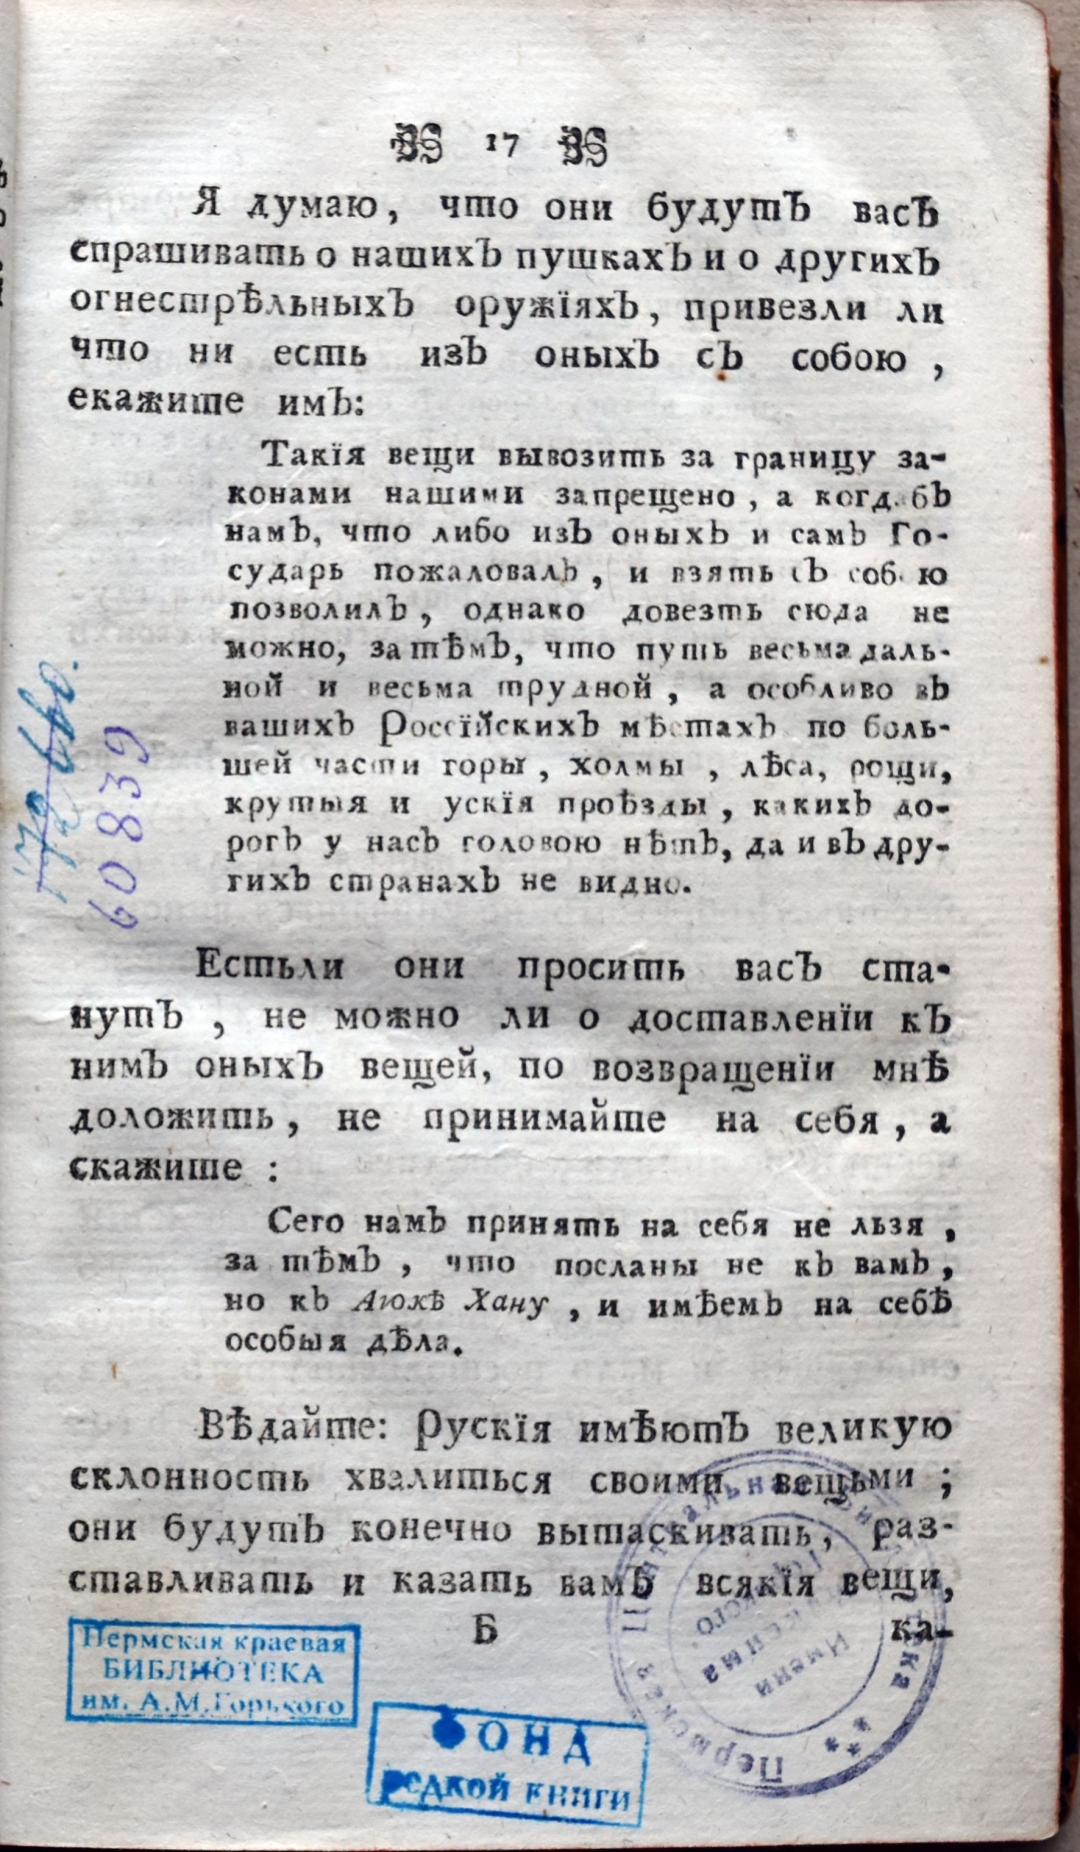 17
Я думаю, что они будутъ васъ
спрашивать о нашихъ пушкахъ и о другихъ
огнестрѣльныхъ оружїяхъ, привезли ли
что ни есть изъ оныхъ съ собою,
скажите имъ:
Такїя вещи вывозить за границу за-
конами нашими запрещено, а когдабъ
намъ, что либо изъ оныхъ и самъ Го-
сударь пожаловалъ, и взять съ собою
позволилъ, однако довезть сюда не
можно, за тѣмъ, что путь весьма даль-
ной и весьма трудной, а особливо въ
вашихъ Россїйскихъ мѣстахъ по боль-
шей части горы, холмы, лѣса, рощи,
крутыя и ускїя проѣзды, какихъ до-
рогъ у насъ головою нѣтъ, да и въ дру-
гихъ странахъ не видно.
Естьли они просить васъ ста-
нутъ, не можно ли о доставленїи къ
нимъ оныхъ вещей, по возвращенїи мнѣ
доложить, не принимайте на себя, а
скажите:
Сего намъ принять на себя не льзя,
за тѣмъ, что посланы не къ вамъ,
но къ Аюкѣ Хану, и имѣемъ на себѣ
особыя дѣла.
Вѣдайте: Рускїя имѣютъ великую
склонность хвалиться своими вещьми;
они будутъ конечно вытаскивать, раз-
ставливать и казать вамъ всякїя вещи,
Б ка-
60839
Пермская краевая
БИБЛИОТЕКА
им. А. М. Горького
ФОНД
РЕДКОЙ КНИГИ
Имени
Максима
Горького